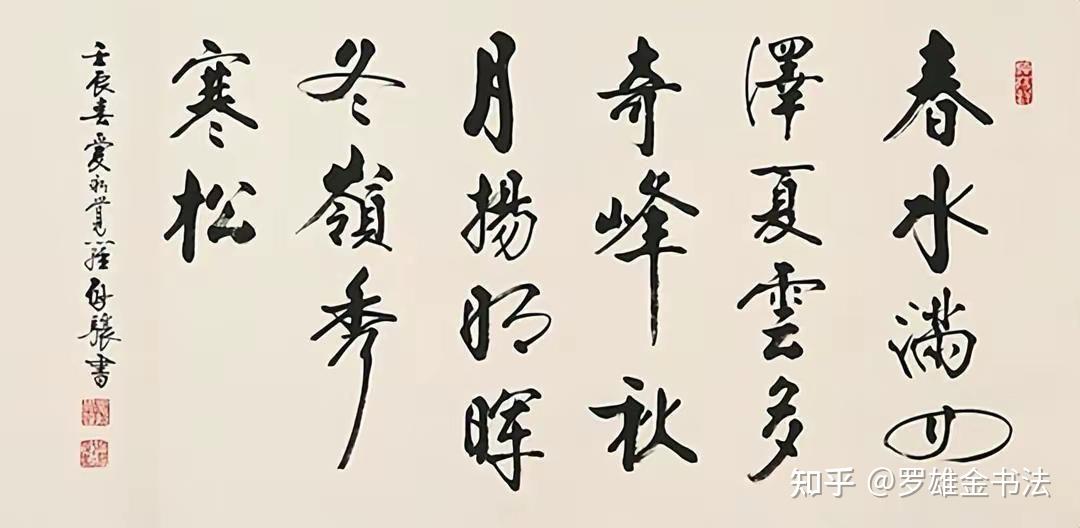 春水滿四
澤夏雲多
奇峰秋
月揚明暉
冬嶺秀
寒松
壬辰春愛新覺羅啟驤書
知乎 @罗雄金书法